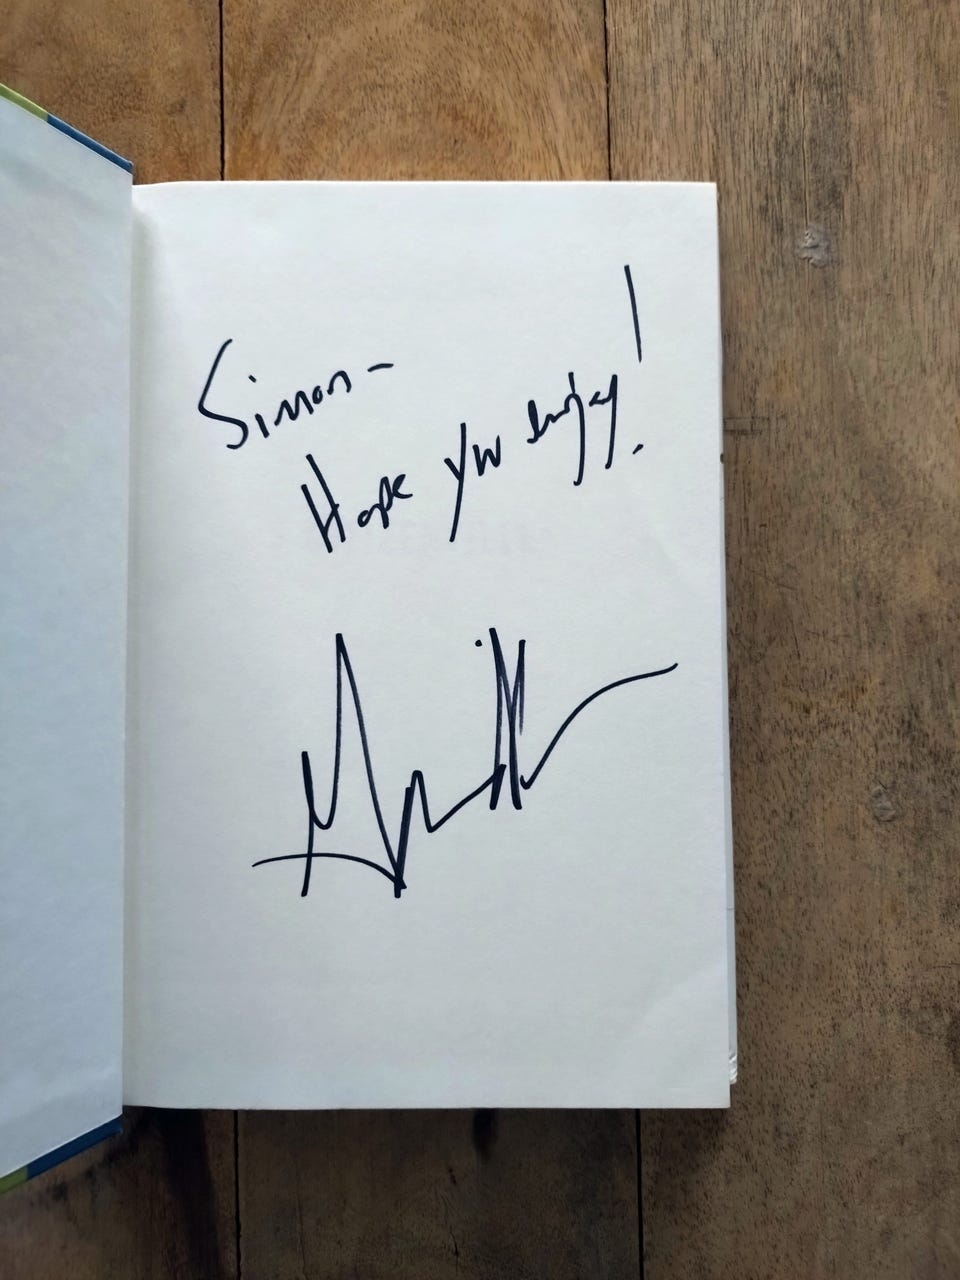 Simon -
Hope you enjoy!